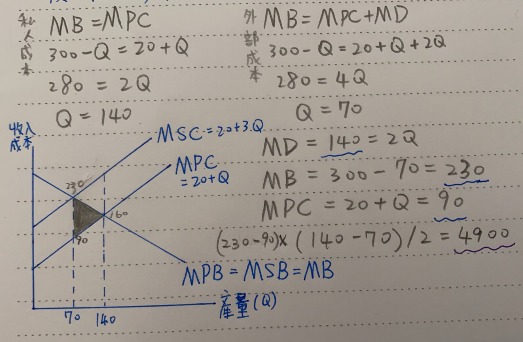 私人成本 MB=MPC
300-Q=20+Q
280=2Q
Q=140
外部成本 MB=MPC+MD
300-Q=20+Q+2Q
280=4Q
Q=70
MD=140=2Q
MB=300-70=230
MPC=20+Q=90
(230-90)×(140-70)/2=4900
收入
成本
MSC=20+3Q
MPC
=20+Q
230
160
90
MPB=MSB=MB
70 140
產量(Q)